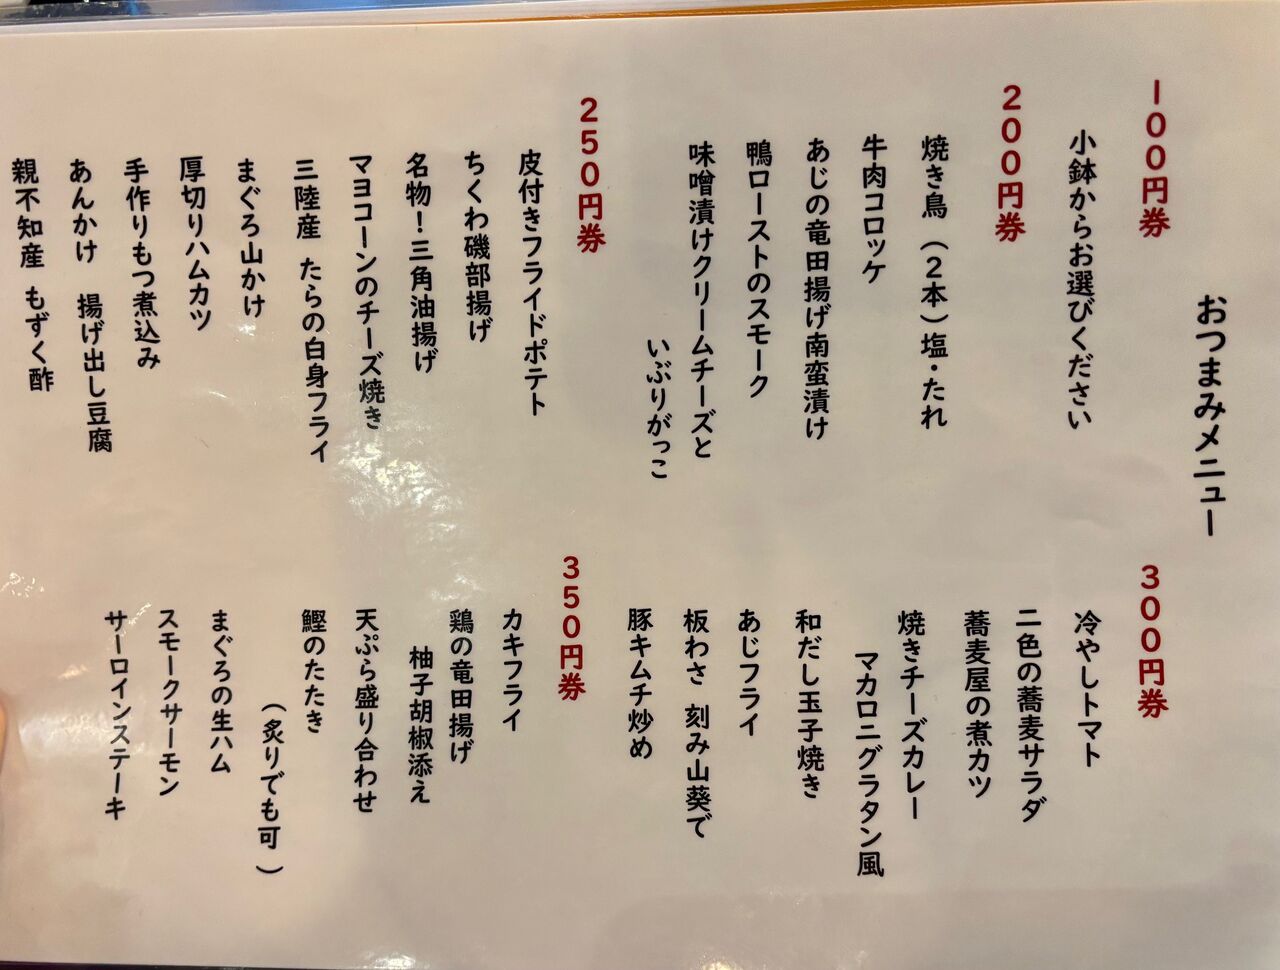 おつまみメニュー
100円券
小鉢からお選びください
200円券
焼き鳥（2本）塩・たれ
牛肉コロッケ
あじの竜田揚げ南蛮漬け
鴨ローストのスモーク
味噌漬けクリームチーズと
いぶりがっこ
250円券
皮付きフライドポテト
ちくわ磯部揚げ
名物！三角油揚げ
マヨコーンのチーズ焼き
三陸産 たらの白身フライ
まぐろ山かけ
厚切りハムカツ
手作りもつ煮込み
あんかけ 揚げ出し豆腐
親不知産 もずく酢
300円券
冷やしトマト
二色の蕎麦サラダ
蕎麦屋の煮カツ
焼きチーズカレー
マカロニグラタン風
和だし玉子焼き
あじフライ
板わさ 刻み山葵で
豚キムチ炒め
350円券
カキフライ
鶏の竜田揚げ
柚子胡椒添え
天ぷら盛り合わせ
鰹のたたき
（炙りでも可）
まぐろの生ハム
スモークサーモン
サーロインステーキ